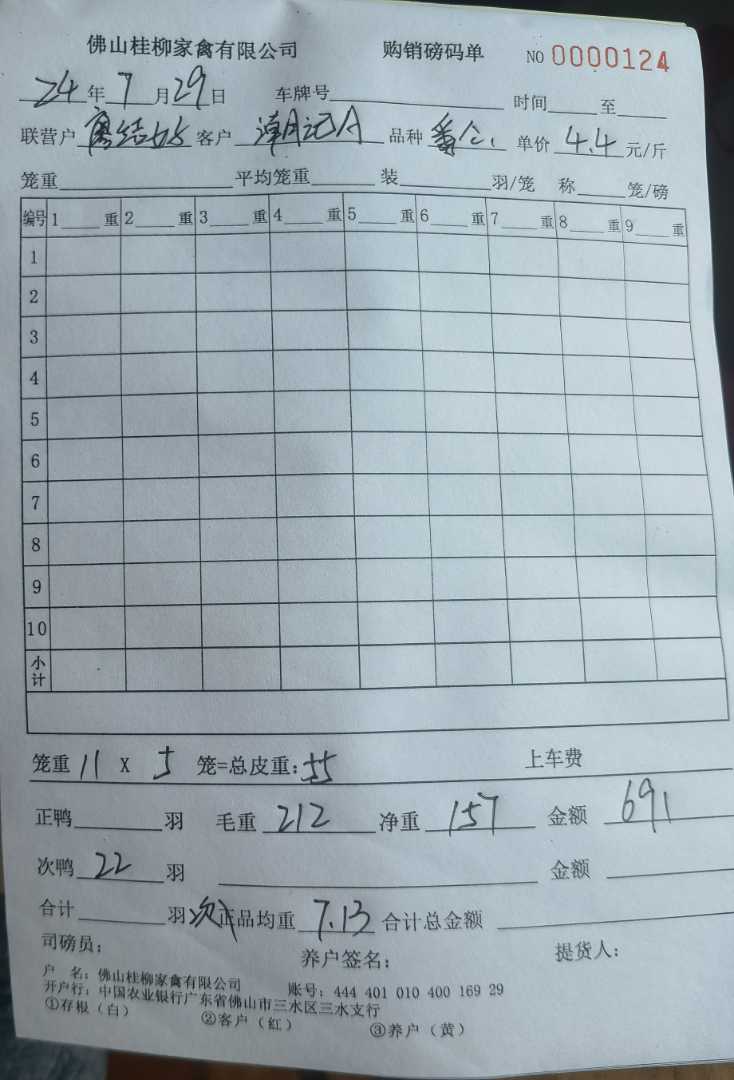 佛山桂柳家禽有限公司 购销磅码单 NO 0000124
24年7月29日 车牌号 时间 至
联营户 客户 潮记A 品种 番 单价 4.4 元/斤
笼重 平均笼重 装 羽/笼 称 笼/磅
编号 1 重 2 重 3 重 4 重 5 重 6 重 7 重 8 重 9 重
1
2
3
4
5
6
7
8
9
10
小计
笼重 11 X 5 笼=总皮重: 55 上车费
正鸭 羽 毛重 212 净重 157 金额 691
次鸭 22 羽 金额
合计 羽 次 正品均重 7.13 合计总金额
司磅员: 养户签名: 提货人:
户 名: 佛山桂柳家禽有限公司 账号: 444 401 010 400 169 29
开户行: 中国农业银行广东省佛山市三水区三水支行
①存根(白) ②客户(红) ③养户(黄)